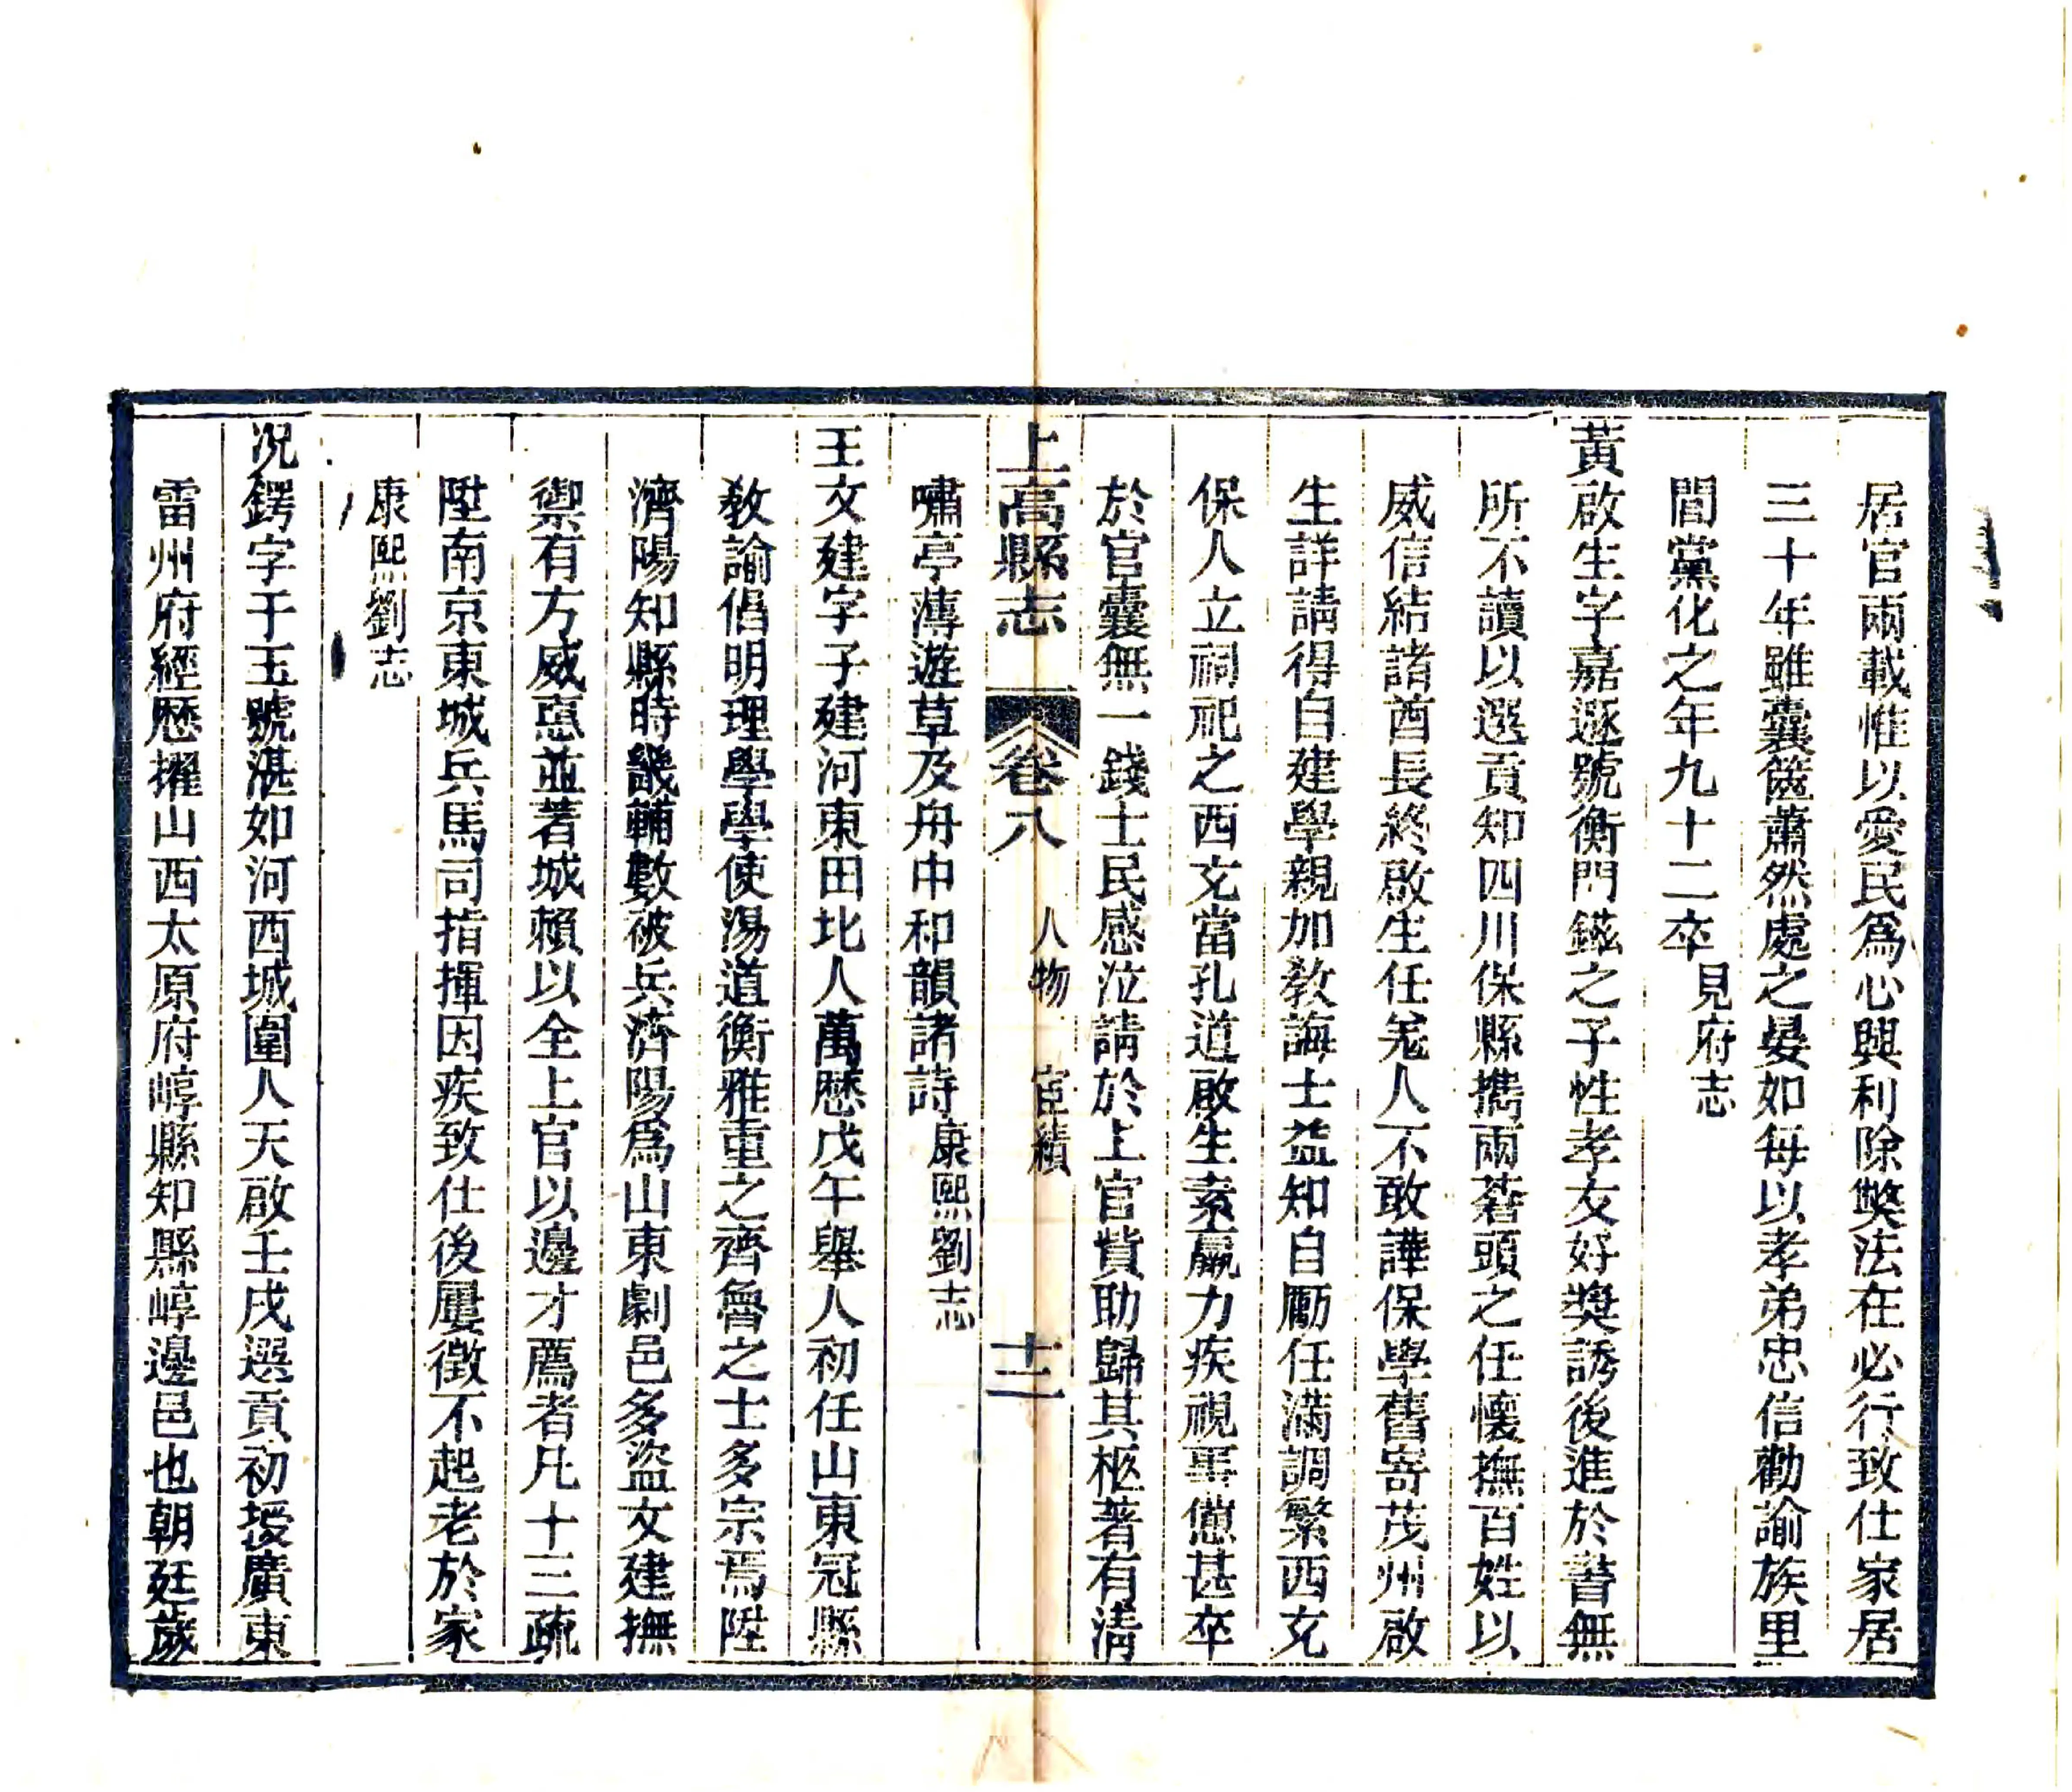 居官兩載惟以愛民爲心興利除獘法在必行致仕家居
三十年雖囊篋蕭然處之晏如每以孝弟忠信勸諭族里
閭黨化之年九十二卒見府志
黃啟生字嘉遯號衡門鎡之子性孝友好獎誘後進於書無
所不讀以選貢知四川保縣攜兩蒼頭之任懷撫百姓以
威信結諸酋長終啟生任羌人不敢譁保學舊寄茂州啟
生詳請得自建學親加敎誨士益知自勵任滿調繁西充
保人立祠祀之西充當孔道啟生素羸力疾視事憊甚卒
於官囊無一錢士民感泣請於上官貲助歸其柩著有清
嘯亭薄遊草及舟中和韻諸詩康熙劉志
上高縣志
卷八
人物 宦績
十二
王文建字子建河東田北人萬歷戊午舉人初任山東冠縣
敎諭倡明理學學使湯道衡雅重之齊魯之士多宗焉陞
濟陽知縣時畿輔數被兵濟陽爲山東劇邑多盜文建撫
禦有方威惠並著城賴以全上官以邊才薦者凡十三疏
陞南京東城兵馬司指揮因疾致仕後屢徵不起老於家
康熙劉志
况鍔字于玉號湛如河西城圍人天啟壬戌選貢初授廣東
雷州府經歷擢山西太原府崞縣知縣崞邊邑也朝廷歲